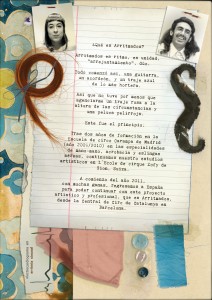 ¿Qué es Arritmados?
Arritmados es ritmo, es unidad,
"arrejuntamiento", dúo.
Todo comenzó así, una guitarra,
un acordeón, y un traje azul
de lo más hortera.
Así que no tuvo por menos que
agenciarse un traje rosa a la
altura de las circunstancias y
una peluca pelirroja.
Este fue el principio.
Tras dos años de formación en la
Escuela de circo Carampa de Madrid
(año 2008/2010) en las especialidades
de mano-mano, acrobacia y malabares
aéreos, continuamos nuestro estudios
artísticos en L'Ecole de cirque Lefy de
Niza.
A comienzo del año 2011,
con muchas ganas, regresamos a España
para poder continuar con este proyecto
artístico y profesional, que es Arritmados,
desde la Central de Circ de Catalunya en
Barcelona.